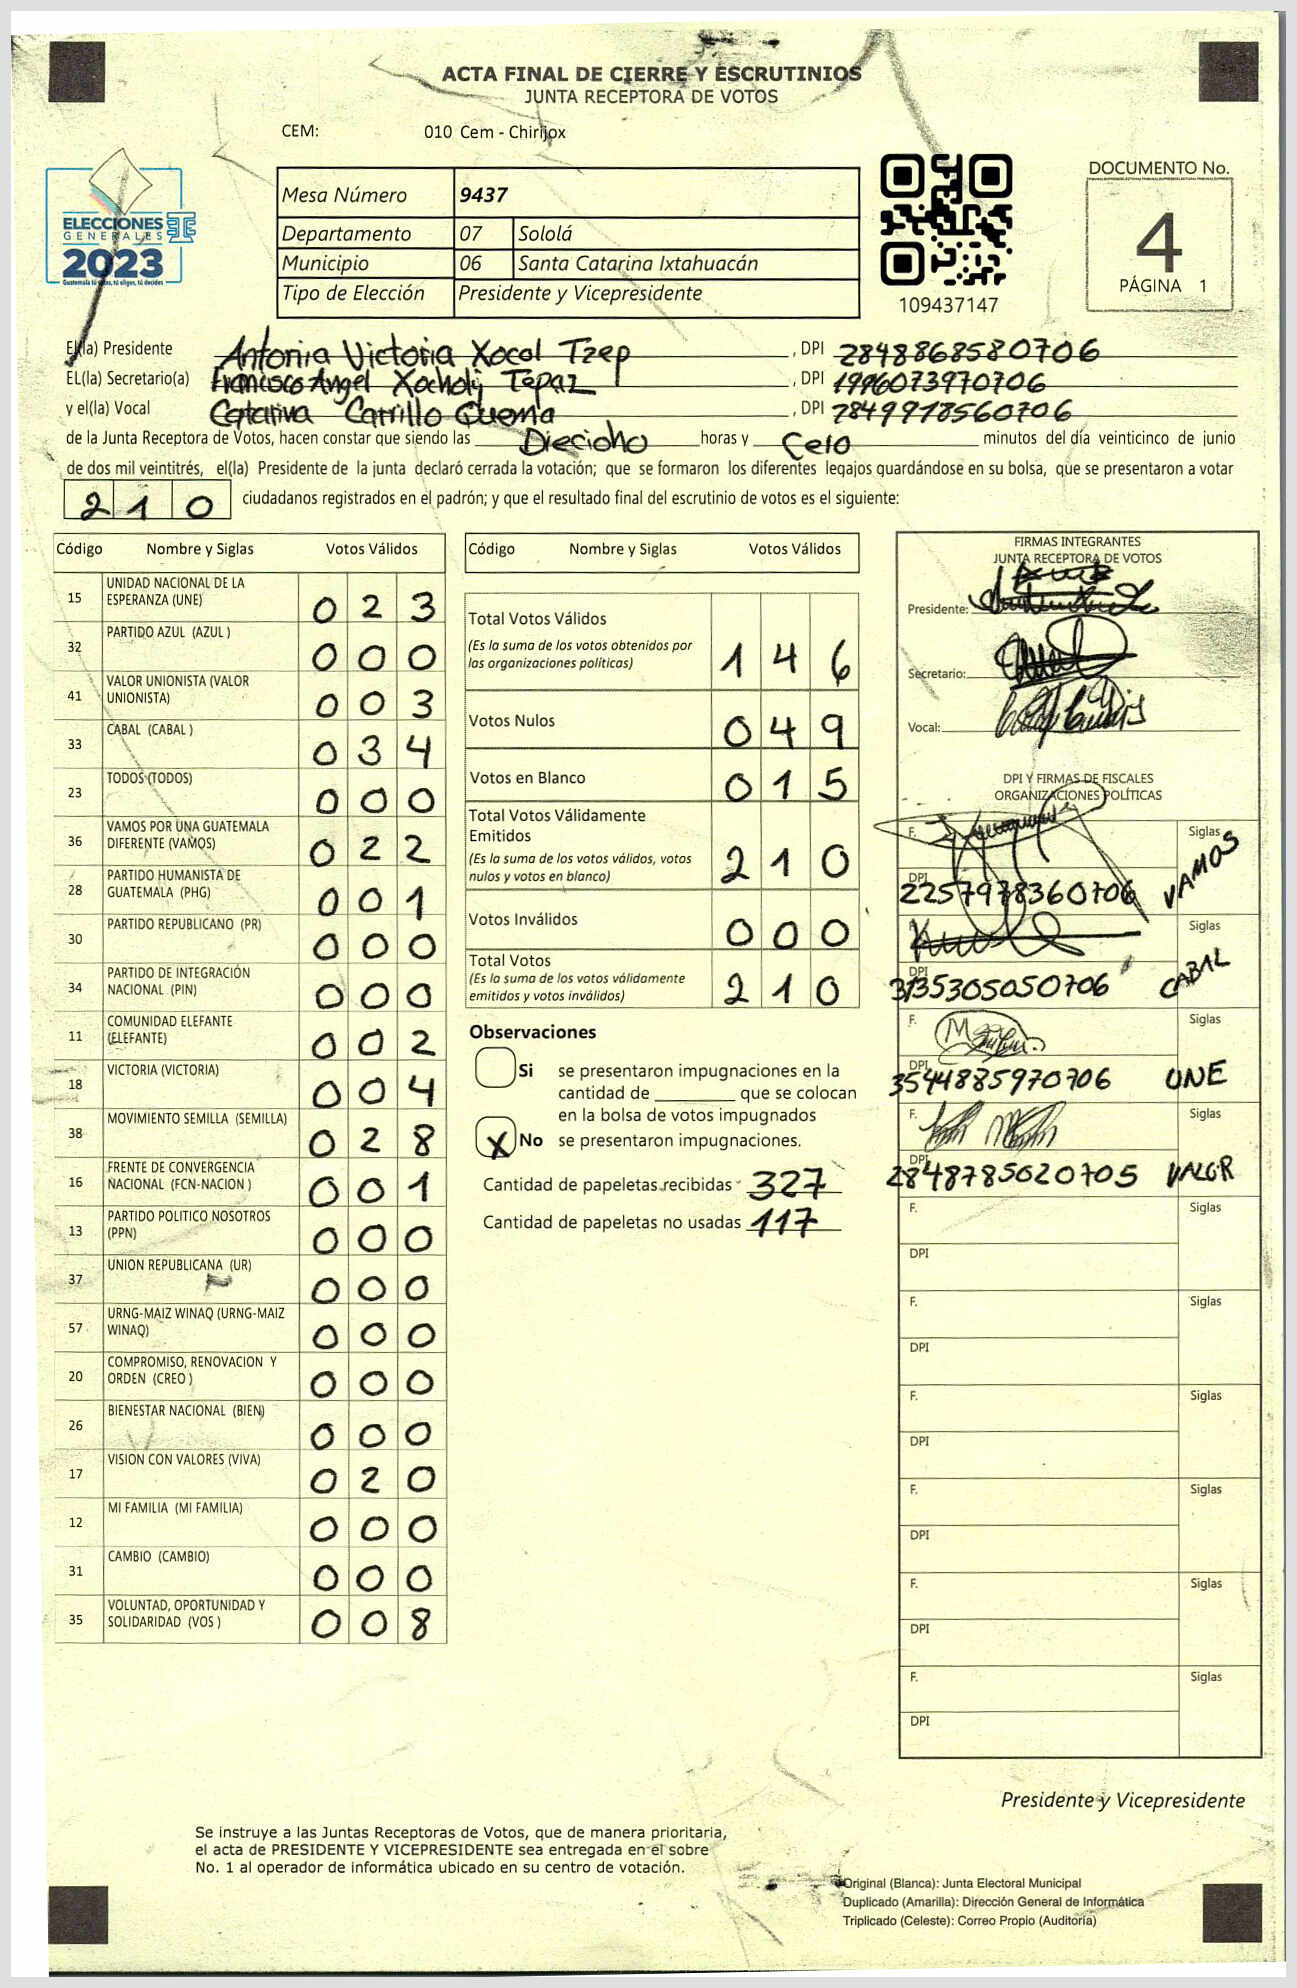 ACTA FINAL DE CIERRE Y ESCRUTINIOS
JUNTA RECEPTORA DE VOTOS
CEM: 010 Cem - Chirijox
ELECCIONES
GENERALES
2023
Guatemala tú eres, tú eliges, tú decides
Mesa Número 9437
Departamento 07 Sololá
Municipio 06 Santa Catarina Ixtahuacán
Tipo de Elección Presidente y Vicepresidente
109437147
DOCUMENTO No.
4
PÁGINA 1
El(la) Presidente Antonia Victoria Xocol Tzep , DPI 2848868580706
EL(la) Secretario(a) Francisco Angel Xocholij Tepaz , DPI 1996073970706
y el(la) Vocal Catarina Carrillo Guema , DPI 2849978560706
de la Junta Receptora de Votos, hacen constar que siendo las Dieciocho horas y Cero minutos del día veinticinco de junio
de dos mil veintitrés, el(la) Presidente de la junta declaró cerrada la votación; que se formaron los diferentes legajos guardándose en su bolsa, que se presentaron a votar
210 ciudadanos registrados en el padrón; y que el resultado final del escrutinio de votos es el siguiente:
Código Nombre y Siglas Votos Válidos
15 UNIDAD NACIONAL DE LA ESPERANZA (UNE) 023
32 PARTIDO AZUL (AZUL ) 000
41 VALOR UNIONISTA (VALOR UNIONISTA) 003
33 CABAL (CABAL ) 034
23 TODOS (TODOS) 000
36 VAMOS POR UNA GUATEMALA DIFERENTE (VAMOS) 022
28 PARTIDO HUMANISTA DE GUATEMALA (PHG) 001
30 PARTIDO REPUBLICANO (PR) 000
34 PARTIDO DE INTEGRACIÓN NACIONAL (PIN) 000
11 COMUNIDAD ELEFANTE (ELEFANTE) 002
18 VICTORIA (VICTORIA) 004
38 MOVIMIENTO SEMILLA (SEMILLA) 028
16 FRENTE DE CONVERGENCIA NACIONAL (FCN-NACION ) 001
13 PARTIDO POLITICO NOSOTROS (PPN) 000
37 UNION REPUBLICANA (UR) 000
57 URNG-MAIZ WINAQ (URNG-MAIZ WINAQ) 000
20 COMPROMISO, RENOVACION Y ORDEN (CREO ) 000
26 BIENESTAR NACIONAL (BIEN) 000
17 VISION CON VALORES (VIVA) 020
12 MI FAMILIA (MI FAMILIA) 000
31 CAMBIO (CAMBIO) 000
35 VOLUNTAD, OPORTUNIDAD Y SOLIDARIDAD (VOS ) 008
Código Nombre y Siglas Votos Válidos
Total Votos Válidos 146
(Es la suma de los votos obtenidos por
las organizaciones políticas)
Votos Nulos 049
Votos en Blanco 015
Total Votos Válidamente
Emitidos 210
(Es la suma de los votos válidos, votos
nulos y votos en blanco)
Votos Inválidos 000
Total Votos 210
(Es la suma de los votos válidamente
emitidos y votos inválidos)
Observaciones
Si se presentaron impugnaciones en la
cantidad de ________ que se colocan
en la bolsa de votos impugnados
X No se presentaron impugnaciones.
Cantidad de papeletas recibidas 327
Cantidad de papeletas no usadas 117
FIRMAS INTEGRANTES
JUNTA RECEPTORA DE VOTOS
Presidente:
Secretario:
Vocal:
DPI Y FIRMAS DE FISCALES
ORGANIZACIONES POLÍTICAS
F. Siglas
DPI 2257978360706 VAMOS
F. Siglas
DPI 3135305050706 CABAL
F. Siglas
DPI 3544885970706 UNE
F. Siglas
DPI 2848785020705 VALOR
F. Siglas
DPI
F. Siglas
DPI
F. Siglas
DPI
F. Siglas
DPI
F. Siglas
DPI
F. Siglas
DPI
Presidente y Vicepresidente
Se instruye a las Juntas Receptoras de Votos, que de manera prioritaria,
el acta de PRESIDENTE Y VICEPRESIDENTE sea entregada en el sobre
No. 1 al operador de informática ubicado en su centro de votación.
Original (Blanca): Junta Electoral Municipal
Duplicado (Amarilla): Dirección General de Informática
Triplicado (Celeste): Correo Propio (Auditoría)